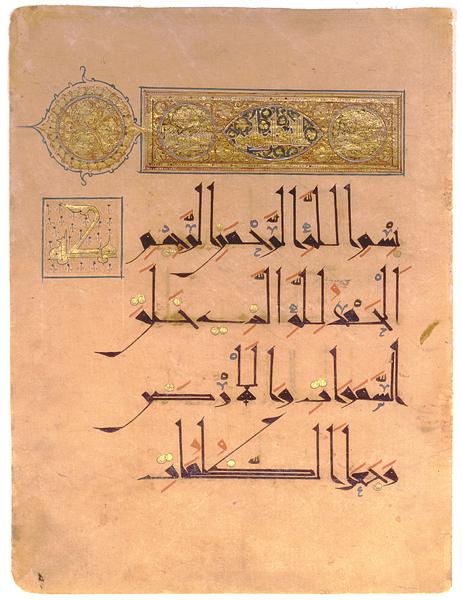 بِسْمِ اللَّهِ الرَّحْمَٰنِ الرَّحِيمِ
الْحَمْدُ لِلَّهِ الَّذِي خَلَقَ
السَّمَوَاتِ وَالْأَرْضَ
وَجَعَلَ الظُّلُمَاتِ